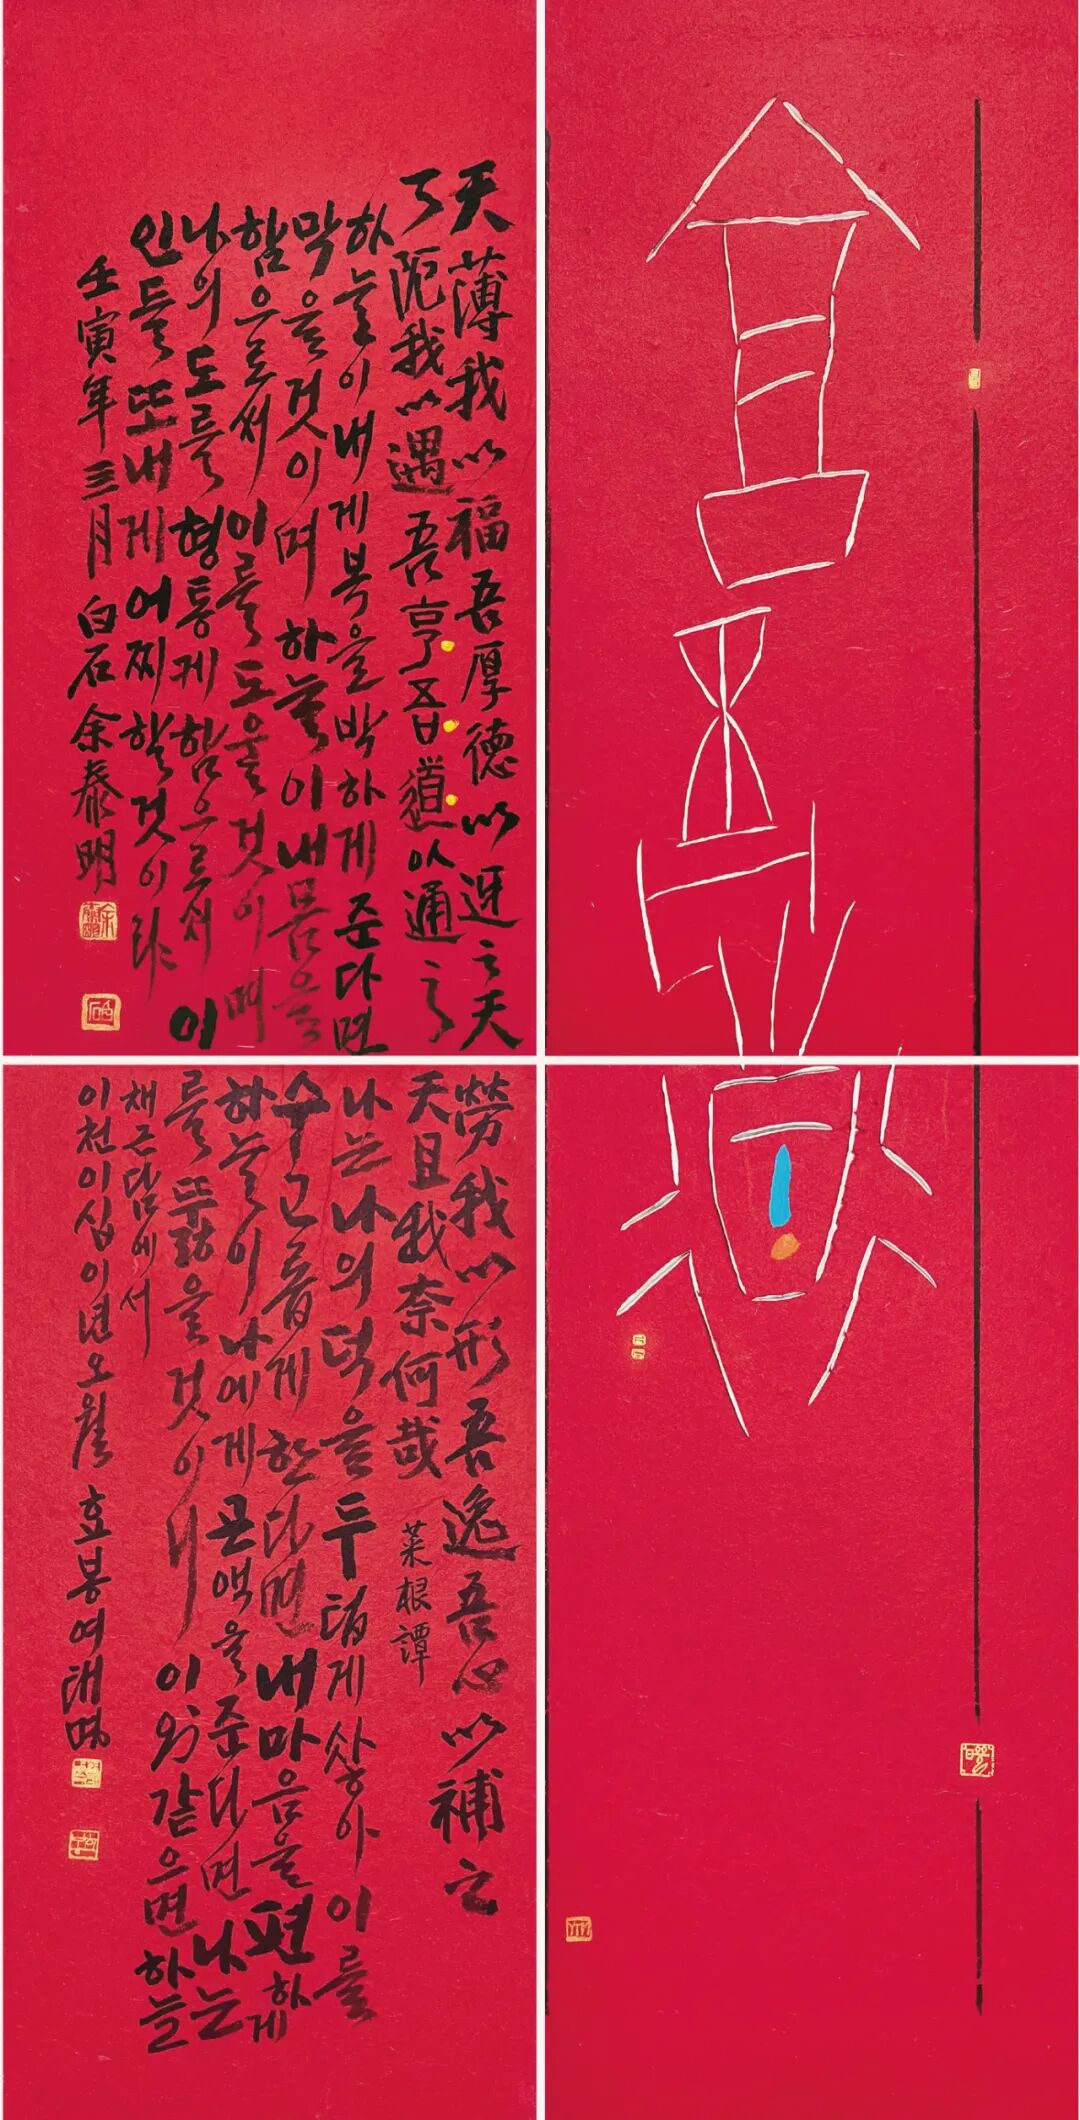 天薄我以福吾厚德以迓之天
了阨我以遇吾亨吾道以通之
하늘이내게복을박하게준다면
막을것이며 하늘이내몸을
함으로써 이를도울것이며
나의도를형통케함으로써 이
인들또내게어찌할것이랴
壬寅年三月 白石余泰明
勞我以形吾逸吾心以補之
天且我奈何哉 菜根譚
나는나의덕을두텁게쌓아 이를
수고롭게한다면 내마음을편하게
하늘이나에게곤액을준다면 나는
를뚫을것이니 이와같으면하늘
채근담에서
이천이십이년오월 효봉여태명